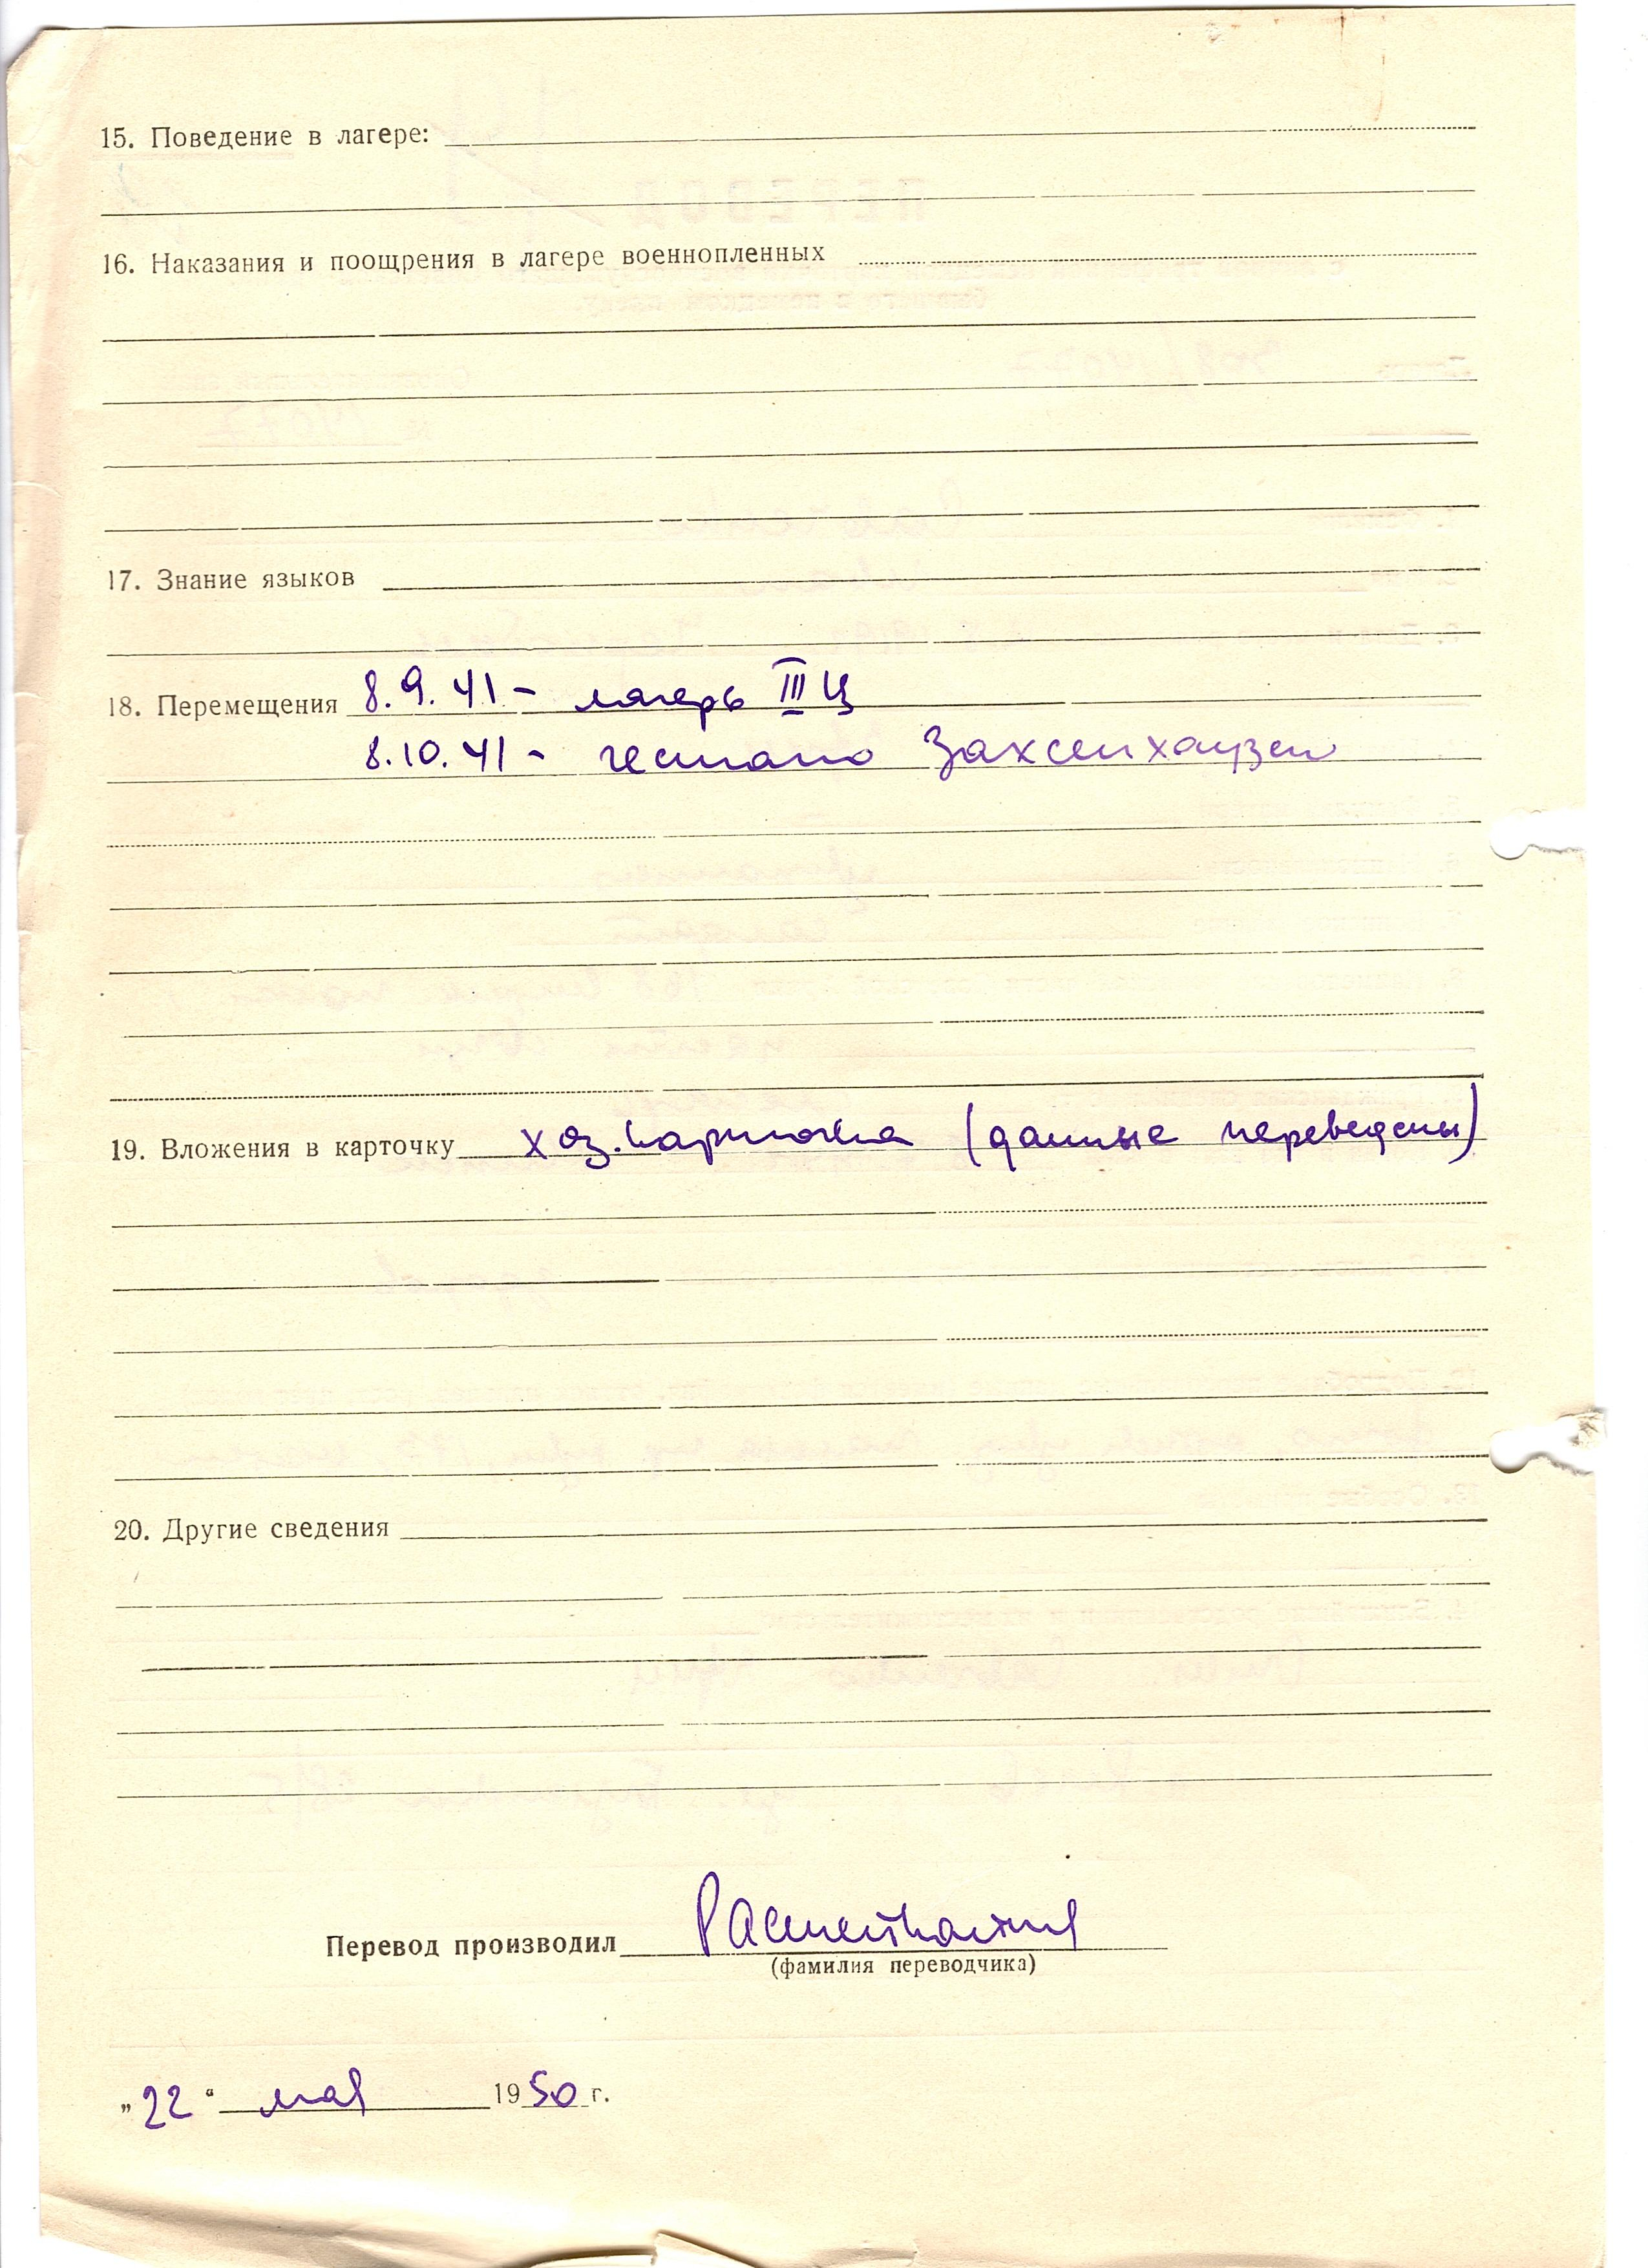 15. Поведение в лагере:
16. Наказания и поощрения в лагере военнопленных
17. Знание языков
18. Перемещения 8.9.41 - лагерь III Ц
8.10.41 - гестапо Заксенхаузен
19. Вложения в карточку хоз. карточка (данные переведены)
20. Другие сведения
Перевод производил
(фамилия переводчика)
„22“ мая 1950 г.